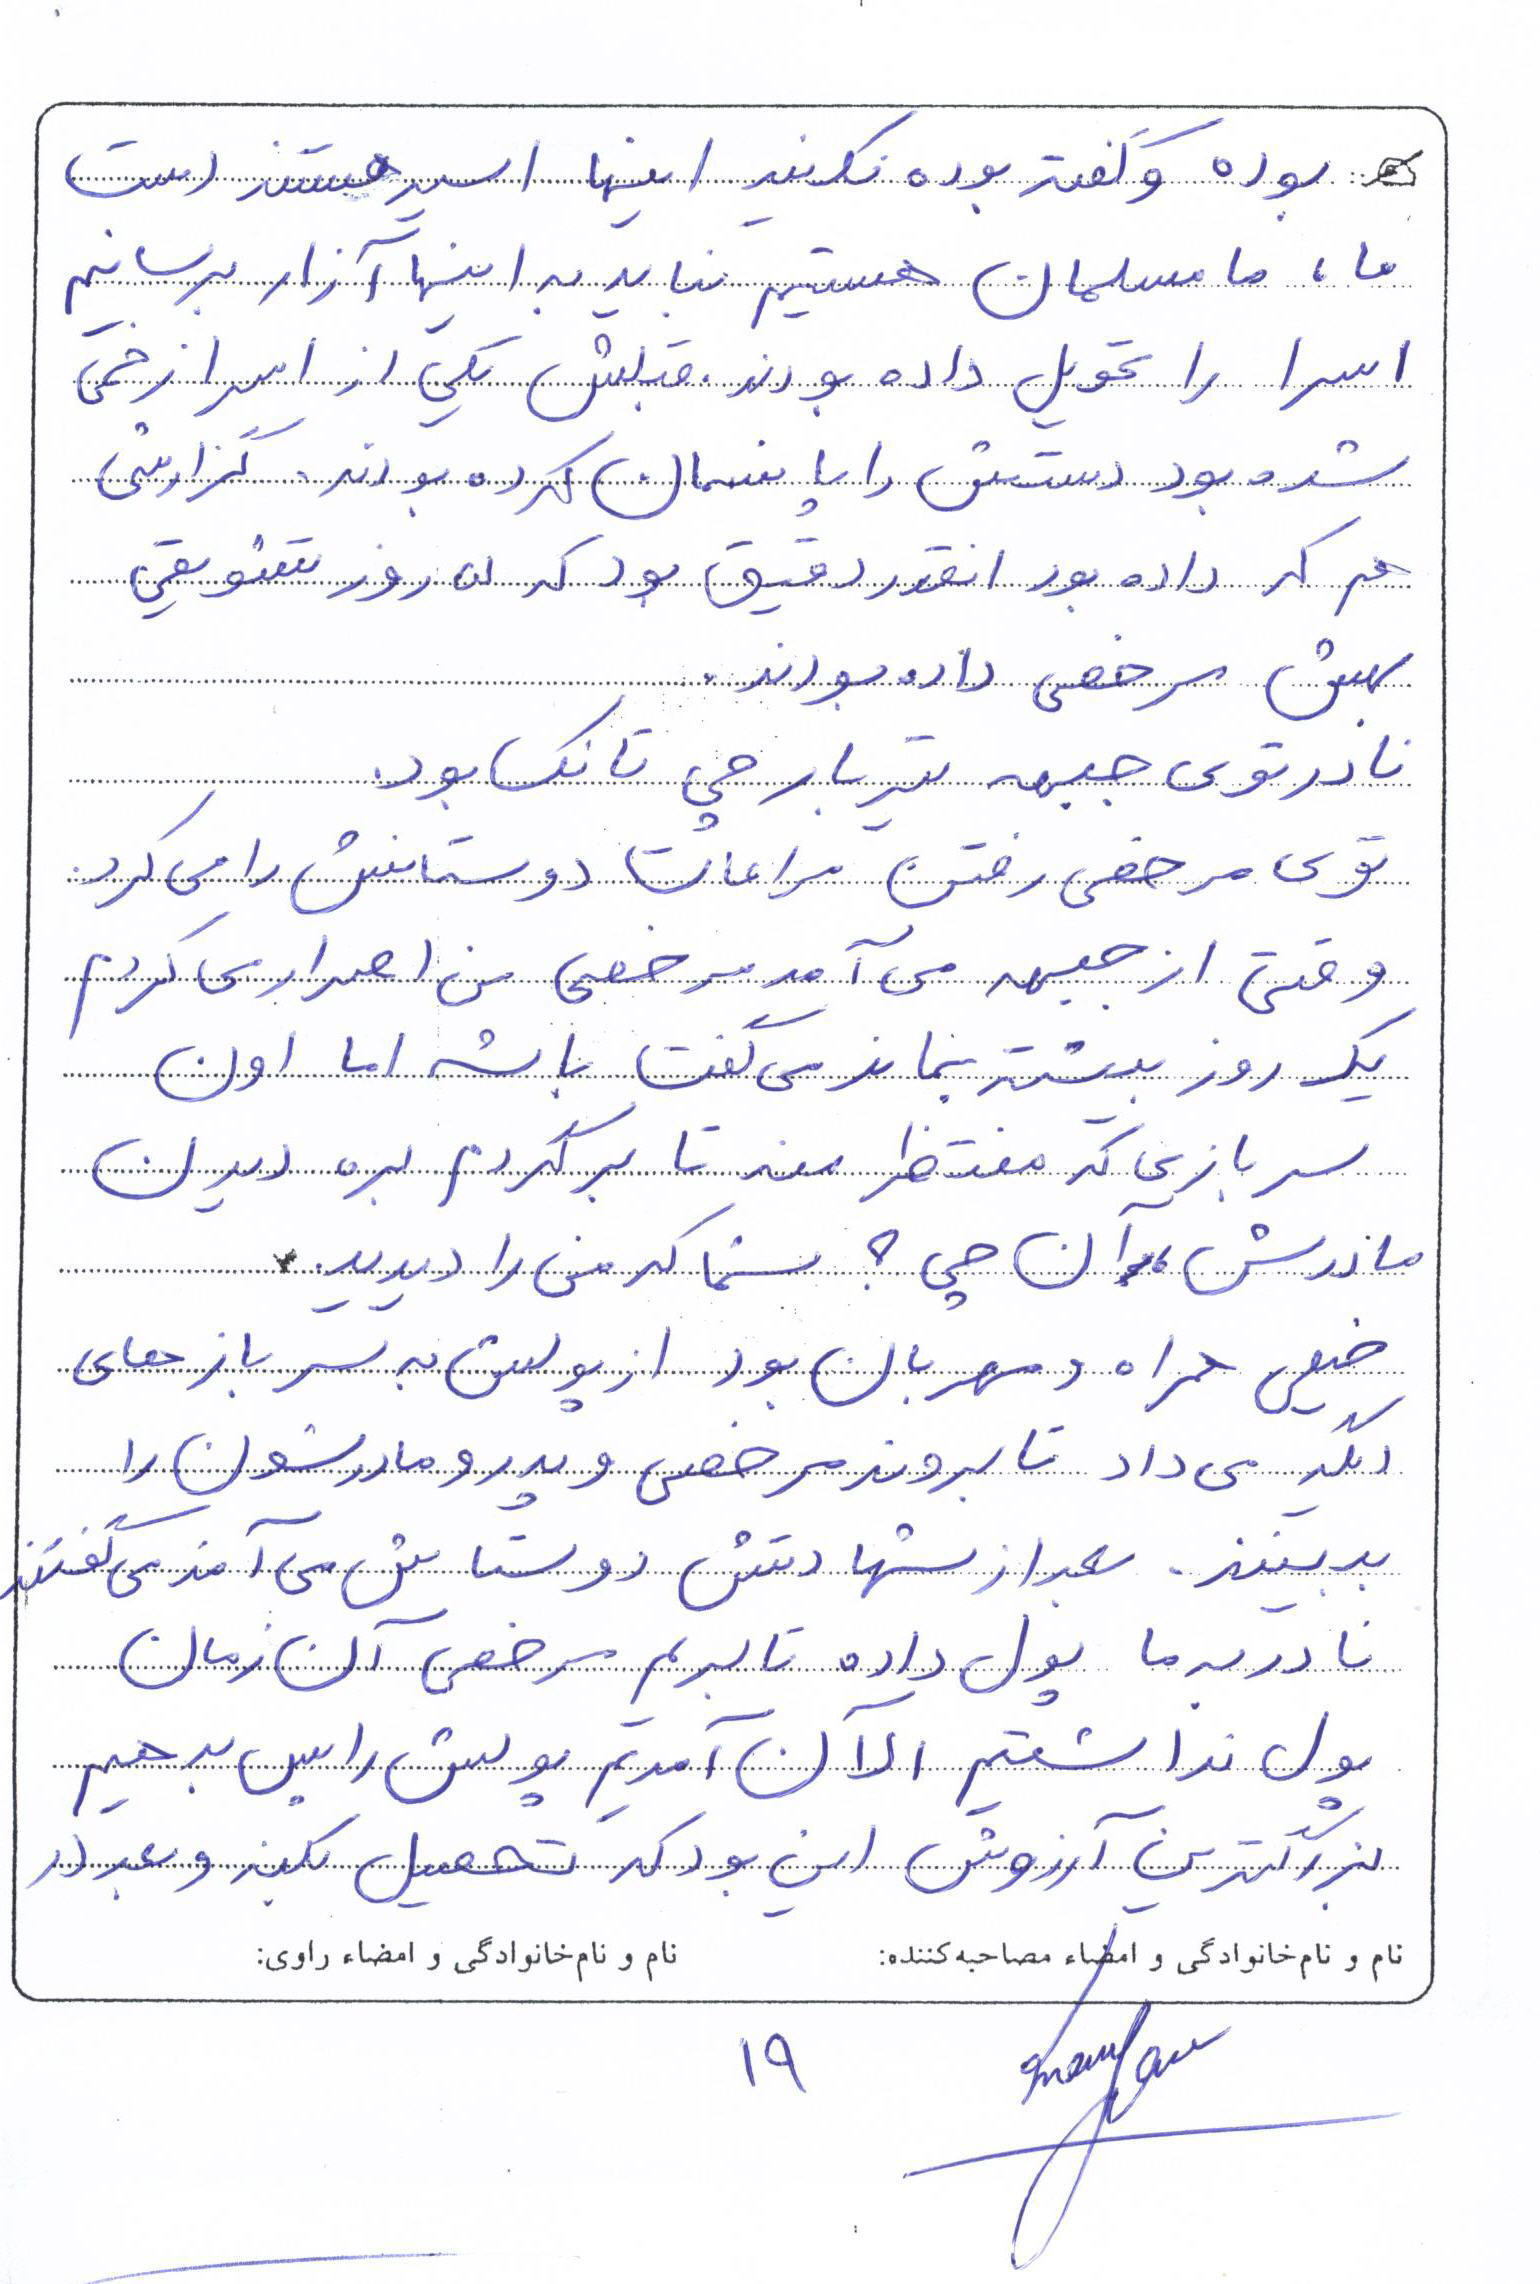 بوده و گفته بوده نکنید اینها اسیر هستند دست
ما، ما مسلمان هستیم نباید به اینها آزار برسانیم
اسرا را تحویل داده بودند. قبلش یکی از اسرا زخمی
شده بود دستش را پانسمان کرده بودند. گزارشی
هم که داده بود انقدر دقیق بود که ۱۵ روز تشویقی
بهش مرخصی داده بودند.
نادر توی جبهه تیربارچی تانک بود.
توی مرخصی رفتن مراعات دوستانش را می‌کرد.
وقتی از جبهه می‌آمد مرخصی من اصرار می‌کردم
یک روز بیشتر بماند می‌گفت باشه اما اون
سربازی که منتظر منه تا برگردم بره دیدن
مادرش، آن چی؟ شما که من را دیدید.
خیلی همراه و مهربان بود از پولش به سربازهای
دیگر می‌داد تا بروند مرخصی و پدر و مادرشون را
ببینند. بعد از شهادتش دوستاش می‌آمدند می‌گفتند
نادر به ما پول داده تا بریم مرخصی آن زمان
پول نداشتیم الآن آمدیم پولش را پس بدهیم
بزرگترین آرزوش این بود که تحصیل بکند و بعد در
نام و نام‌خانوادگی و امضاء مصاحبه‌کننده: نام و نام‌خانوادگی و امضاء راوی:
۱۹